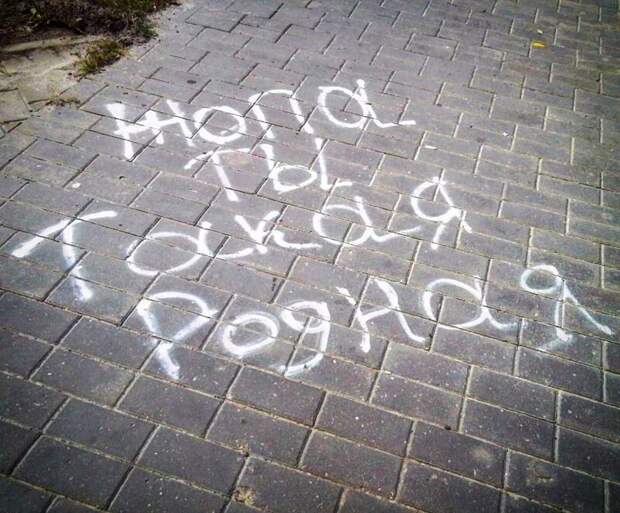 жопа
ты
Такая
Родная